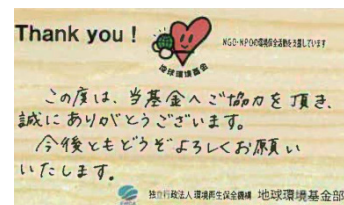 Thank you !
NGO・NPOの環境保全活動を支援しています
地球環境基金
この度は、当基金へご協力を頂き、
誠にありがとうございます。
今後ともどうぞよろしくお願い
いたします。
独立行政法人 環境再生保全機構 地球環境基金部